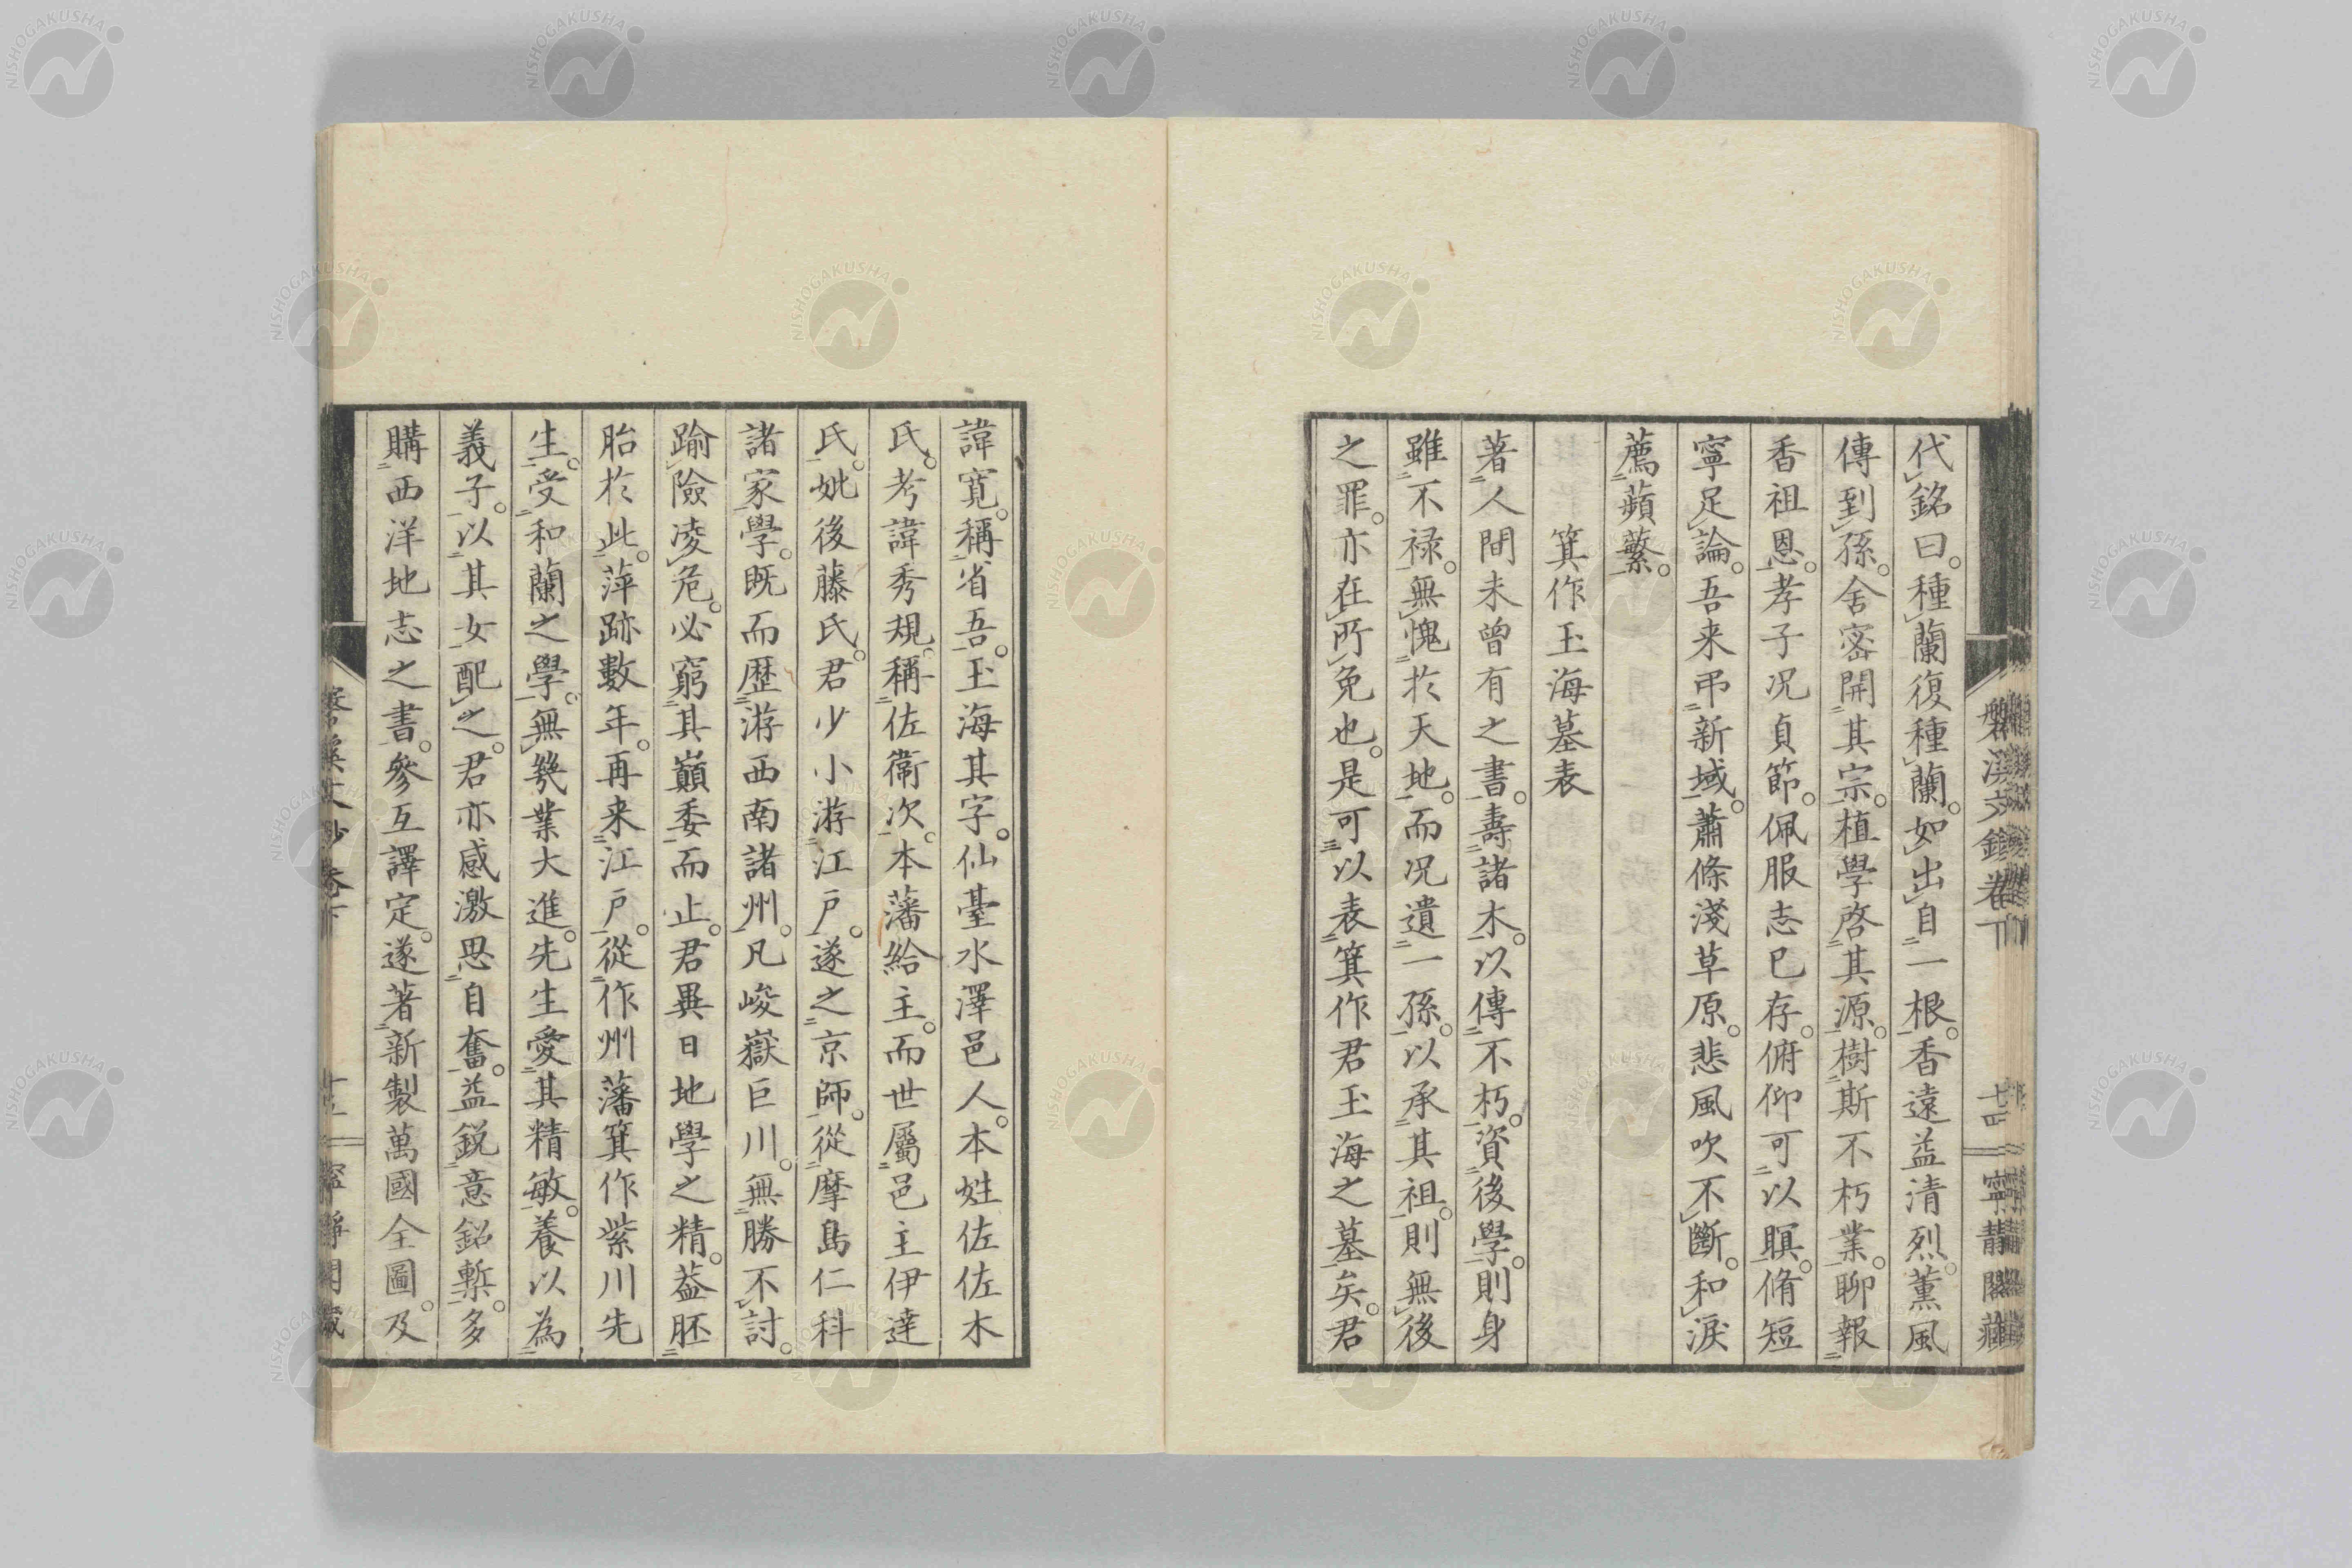 代銘曰。種蘭復種蘭。如出自一根。香遠益清烈。薫風
傳到孫。舍密開其宗。植學啓其源。樹斯不朽業。聊報
香祖恩。孝子况貞節。佩服志已存。俯仰可以瞑。脩短
寧足論。吾来弔新域。蕭條淺草原。悲風吹不斷。和淚
薦蘋蘩。
箕作玉海墓表
著人間未曾有之書。壽諸木。以傳不朽。資後學。則身
雖不禄。無愧於天地。而况遺一孫。以承其祖。則無後
之罪。亦在所免也。是可以表箕作君玉海之墓矣。君
諱寛。稱省吾。玉海其字。仙臺水澤邑人。本姓佐佐木
氏。考諱秀規。稱佐衞次。本藩給主。而世屬邑主伊達
氏。妣後藤氏。君少小游江戸。遂之京師。從摩島仁科
諸家學。既而歴游西南諸州。凡峻嶽巨川。無勝不討。
踰險凌危。必窮其巓委而止。君異日地學之精。葢胚
胎於此。萍跡數年。再来江戸。從作州藩箕作紫川先
生。受和蘭之學。無幾業大進。先生愛其精敏。養以為
義子。以其女配之。君亦感激思自奮。益鋭意鉛槧。多
購西洋地志之書。參互譯定。遂著新製萬國全圖。及
磐渓文鈔卷下
十四
寧靜閣藏